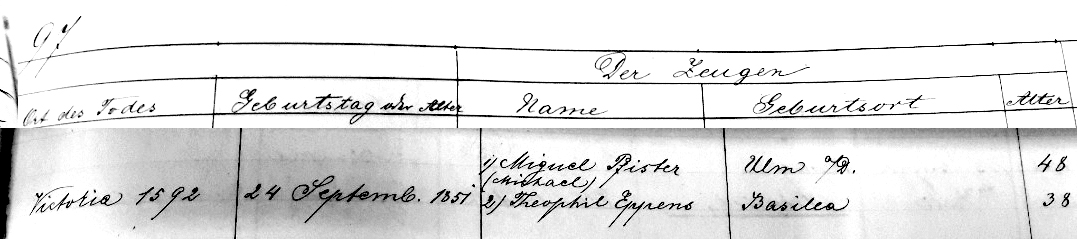 97
Der Zeugen
Ort des Todes Geburtstag oder Alter Name Geburtsort Alter
1) Miguel Pfister Ulm a/D. 48
(Michael)
Victoria 1592 24 Septemb. 1851 2) Theophil Eppens Basilea 38